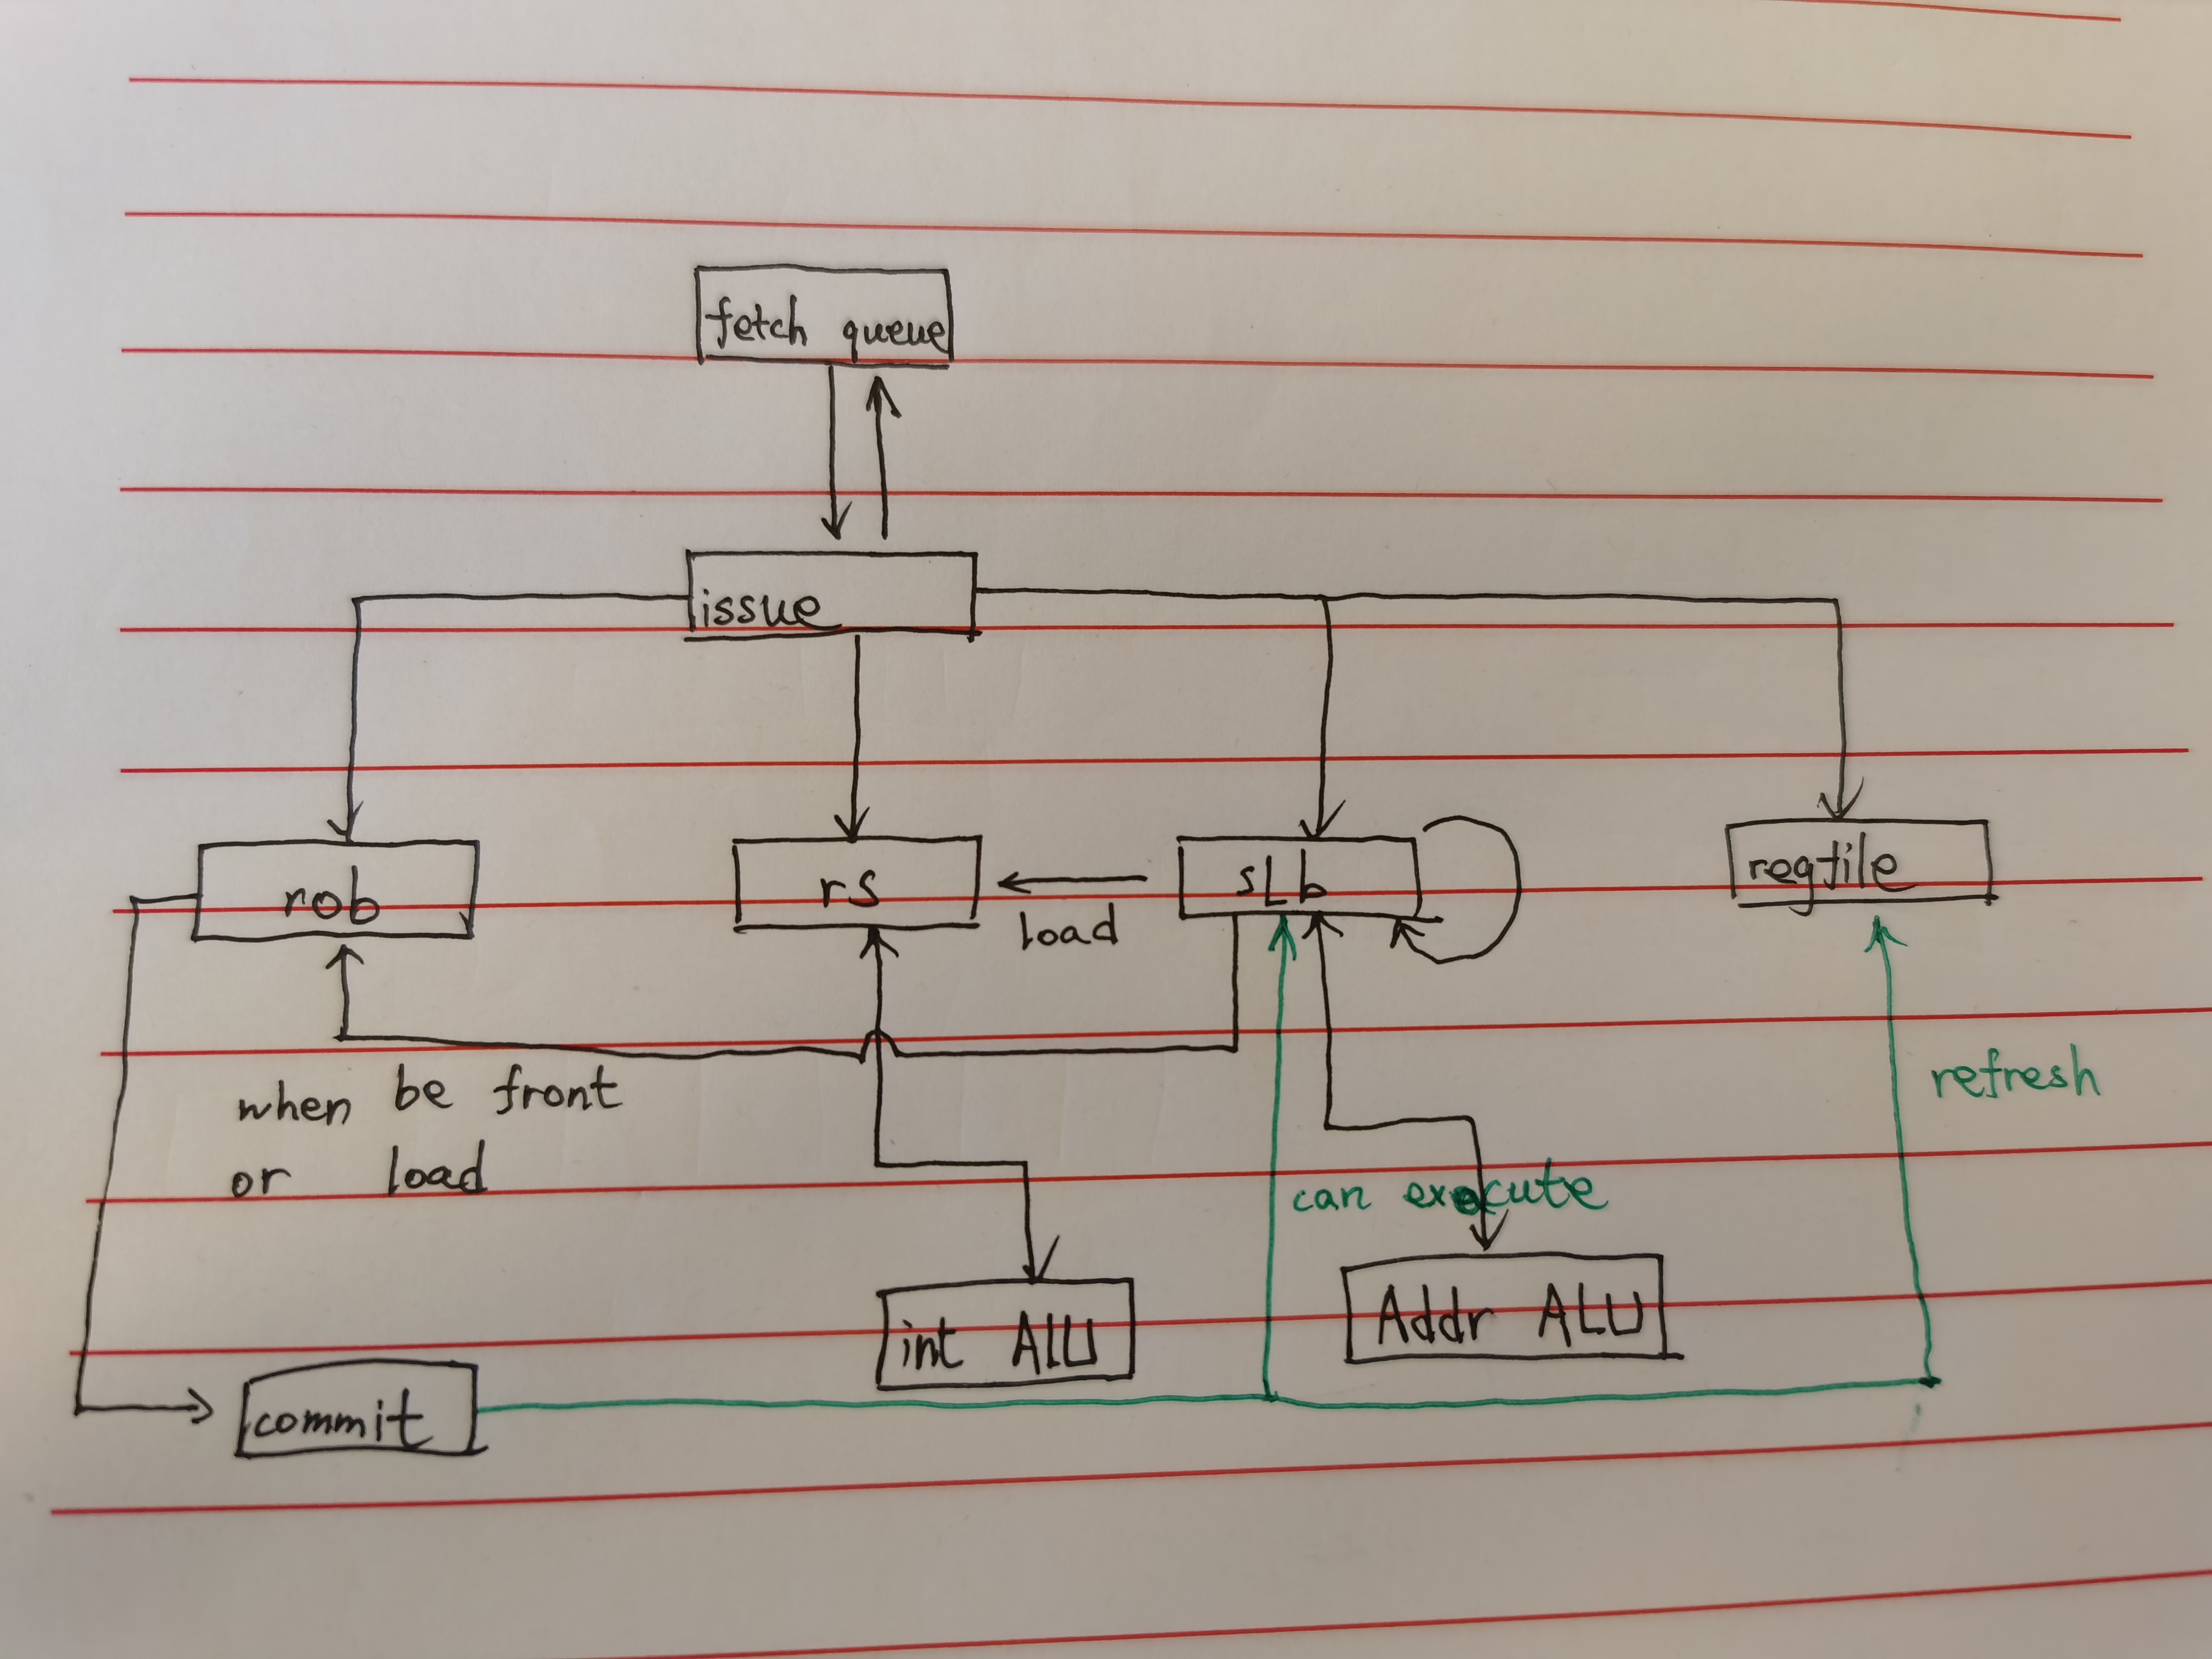 fetch queue
issue
rob
rs
sLb
regfile
load
when be front
or load
refresh
can execute
int ALU
Addr ALU
commit